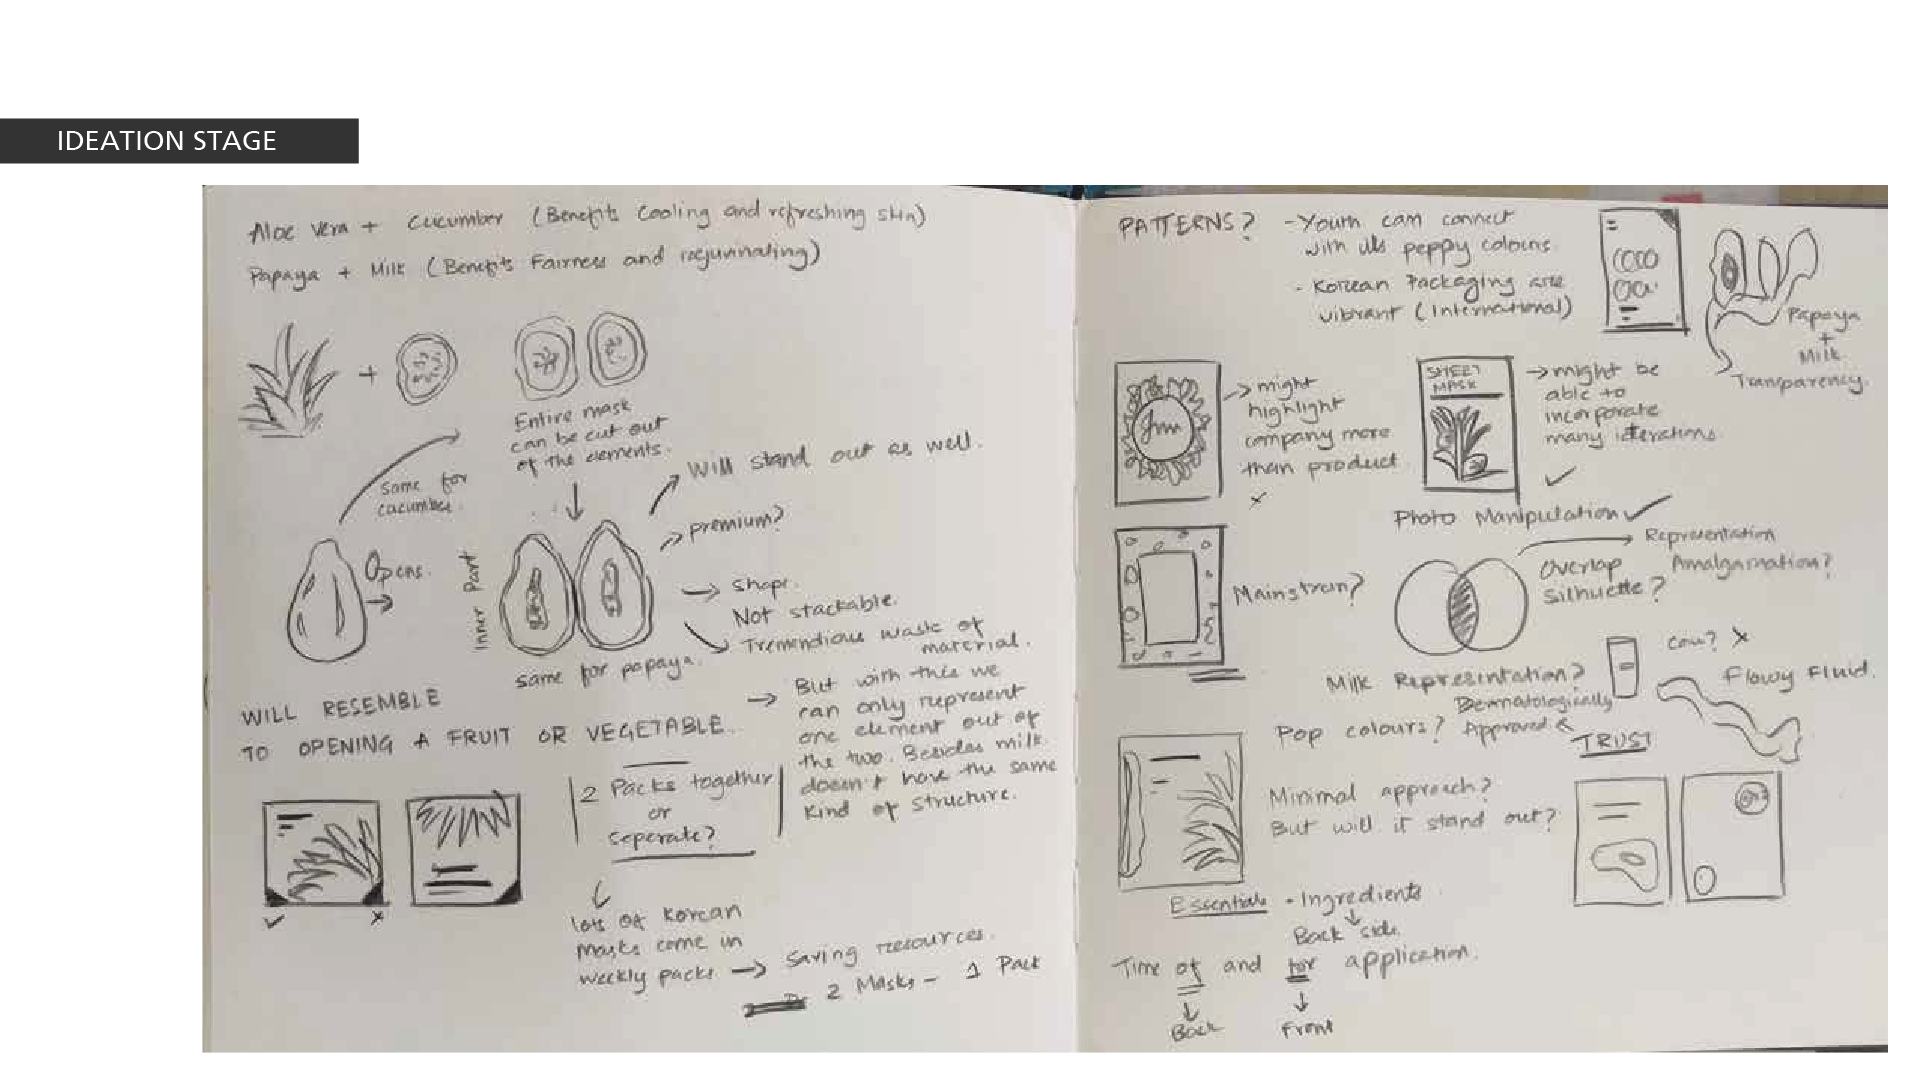 IDEATION STAGE
Aloe vera + Cucumber (Benefits Cooling and refreshing skin)
Papaya + Milk (Benefits Fairness and rejuvinating)
+
Entire mask
can be cut out
of the elements.
Same for
cucumber.
Will stand out as well.
premium?
Opens.
Inner Part
Shape.
Not stackable.
Tremendious waste of
material.
same for papaya.
WILL RESEMBLE
TO OPENING A FRUIT OR VEGETABLE.
But with this we
can only represent
one element out of
the two. Besides milk
doesn't have the same
kind of structure.
2 Packs together
or
seperate?
lots of Korean
masks come in
weekly packs → Saving resources.
2 Masks - 1 Pack
PATTERNS? - Youth can connect
with peppy colours.
- Korean Packaging are
vibrant (International)
Papaya
+
Milk
Transparency.
might
highlight
company more
than product
x
SHEET
MASK
might be
able to
incorporate
many iterations.
Photo Manipulation
Representation
Amalgamation?
Overlap
Silhuette?
Mainstream?
Milk Representation?
Cow? x
Flowy Fluid.
Dermatologically
Approved
TRUST
Pop colours?
Minimal approach?
But will it stand out?
Essentials - Ingredients
Back side.
Time of and for application.
Back
Front